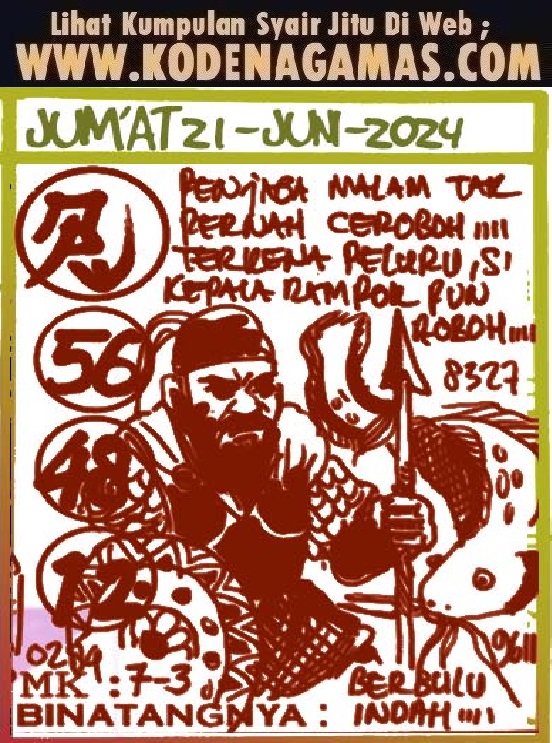 Lihat Kumpulan Syair Jitu Di Web ;
WWW.KODENAGAMAS.COM
JUM'AT 21-JUN-2024
PENJAGA MALAM TAK
PERNAH CEROBOH !!!!
TERKENA PELURU, SI
KEPALA RAMPOK PUN
ROBOH !!!!
8327
56
48
12
9611
MK : 7-3
BERBULU
BINATANGNYA : INDAH !!!!